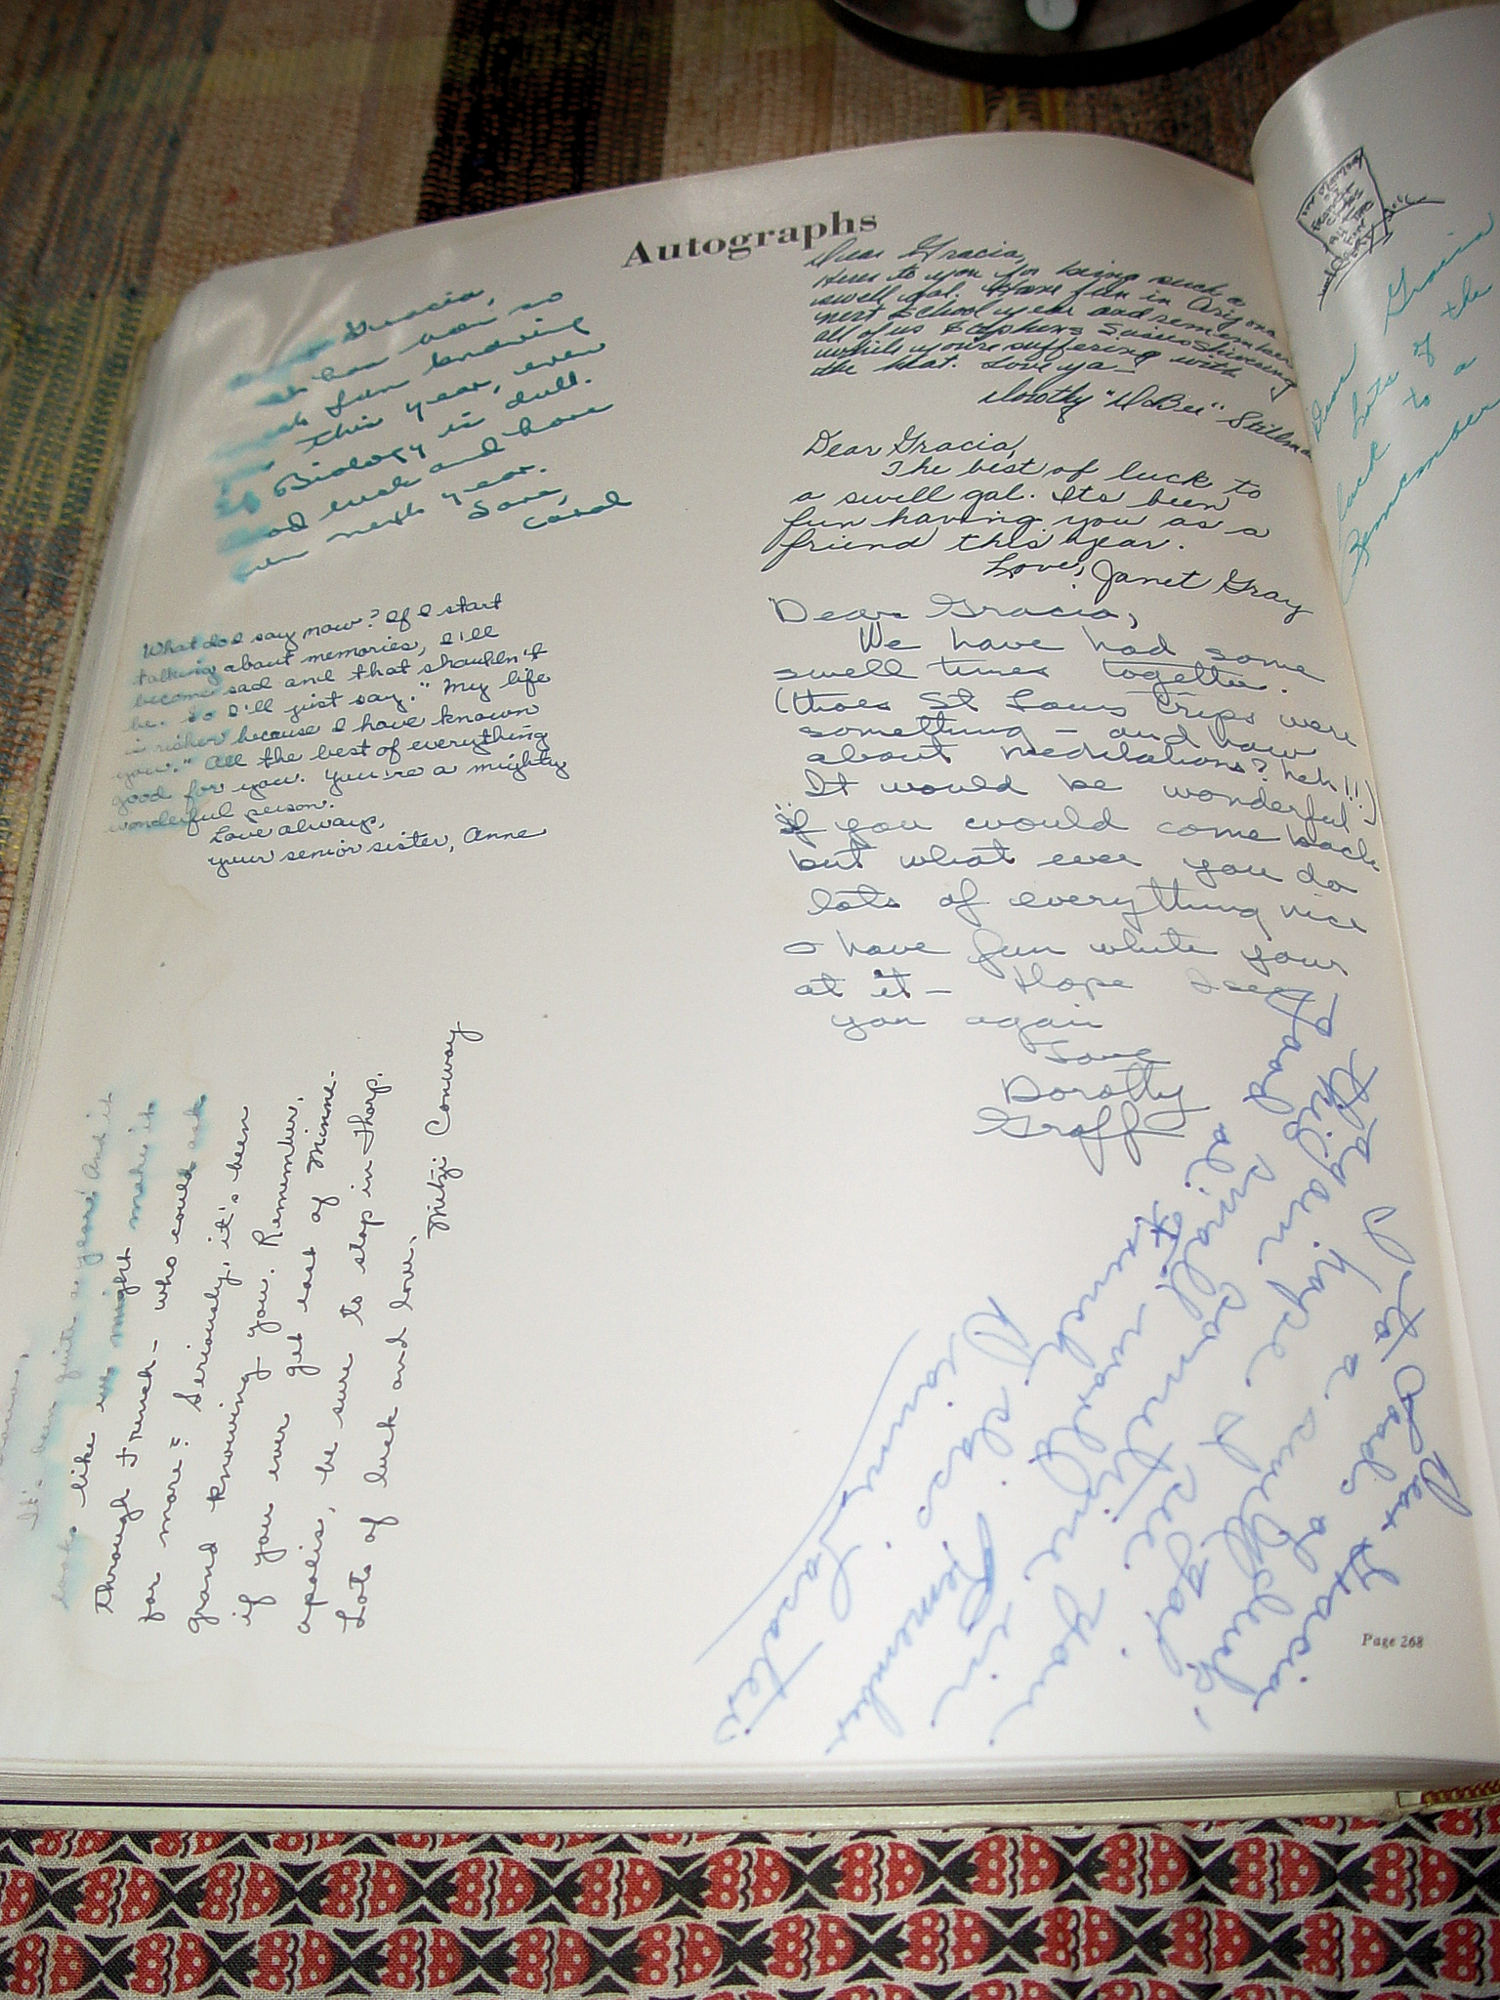 Autographs
Gracia,
so
fun knowing
this year, even
if Biology is dull.
luck and have
fun next year.
Love,
Carol
What do I say now? If I start
talking about memories, I'll
become sad and that shouldn't
be. So I'll just say: "My life
is richer because I have known
you." All the best of everything
good for you. You're a mighty
wonderful person.
Love always,
your senior sister, Anne
It's been quite a year! And it
looks like we might make it
through French - who could ask
for more? Seriously, it's been
grand knowing you. Remember,
if you ever get east of Minne-
apolis, be sure to stop in Thorp.
Lots of luck and love,
Mitzi Conway
Dear Gracia,
Here's to you for being such a
swell gal. Have fun in Arizona
next school year and remember
all of us Stephens Susies shivering
while you're suffering with
the heat. Love ya -
Dorothy "DeBee" Stillman
Dear Gracia,
The best of luck to
a swell gal. Its been
fun having you as a
friend this year.
Love, Janet Gray
Dear Gracia,
We have had some
swell times together.
(thoes St Louis trips were
something - and how
about meditations? heh!!!)
It would be wonderful
if you would come back
but what ever you do
lots of everything nice
& have fun while your
at it - Hope I see
you again
Love
Dorothy
Graff
Dear Gracia,
Loads of luck
to a swell gal.
I hope I see you
again sometime in
this small world.
Good ol' French
class Remember
Dianne Lasater
Page 268
Dear Gracia
Lots of the
luck to a
Remember